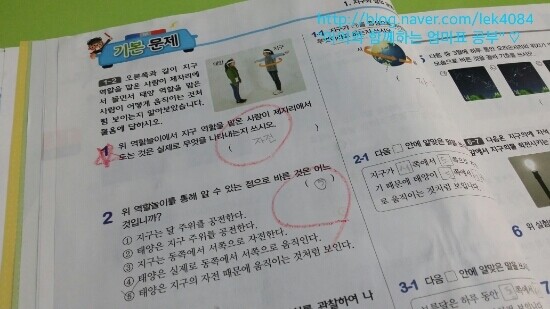 http://blog.naver.com/lek4084
1. 지구와
기본 문제
1-2 오른쪽과 같이 지구
역할을 맡은 사람이 제자리에
서 돌면서 태양 역할을 맡은
사람이 어떻게 움직이는 것처
럼 보이는지 알아보았습니다.
물음에 답하시오.
태양
지구
1 위 역할놀이에서 지구 역할을 맡은 사람이 제자리에서
도는 것은 실제로 무엇을 나타내는지 쓰시오.
( 자전 )
2 위 역할놀이를 통해 알 수 있는 점으로 바른 것은 어느
것입니까? ( )
① 지구는 달 주위를 공전한다.
② 태양은 지구 주위를 공전한다.
③ 지구는 동쪽에서 서쪽으로 자전한다.
④ 태양은 실제로 동쪽에서 서쪽으로 움직인다.
⑤ 태양은 지구의 자전 때문에 움직이는 것처럼 보인다.
를 관찰하여 나
1-1
2-1 다음 □ 안에 알맞은
지구가 쪽에서
기 때문에 태양이
로 움직이는 것처럼 보입니다.
3-1 다음 □ 안에 알맞은 말을
은 하루 동안
5-1 다음은 지구의에
6 위 실험
7